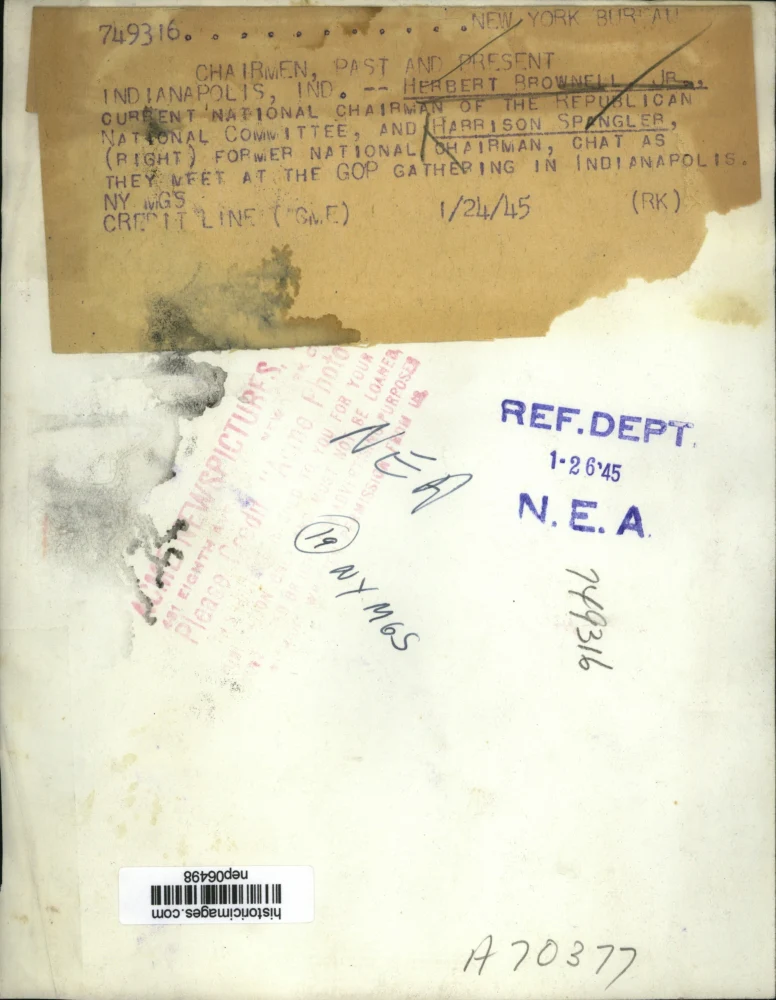 749316. . . . . . . . . . . . .NEW YORK BUREAU
CHAIRMEN, PAST AND PRESENT
INDIANAPOLIS, IND. -- HERBERT BROWNELL JR.,
CURRENT NATIONAL CHAIRMAN OF THE REPUBLICAN
NATIONAL COMMITTEE, AND HARRISON SPANGLER,
(RIGHT) FORMER NATIONAL CHAIRMAN, CHAT AS
THEY MEET AT THE GOP GATHERING IN INDIANAPOLIS.
NY MGS
CREDIT LINE (ACME) 1/24/45 (RK)
ACME NEWSPICTURES,
461 EIGHTH
Please Credit
Photo
YOU FOR YOUR
BE LOANED
PURPOSES
FROM US
NEA
19
NY MGS
REF. DEPT.
1-26'45
N. E. A.
749316
historicimages.com
nep06498
A70377